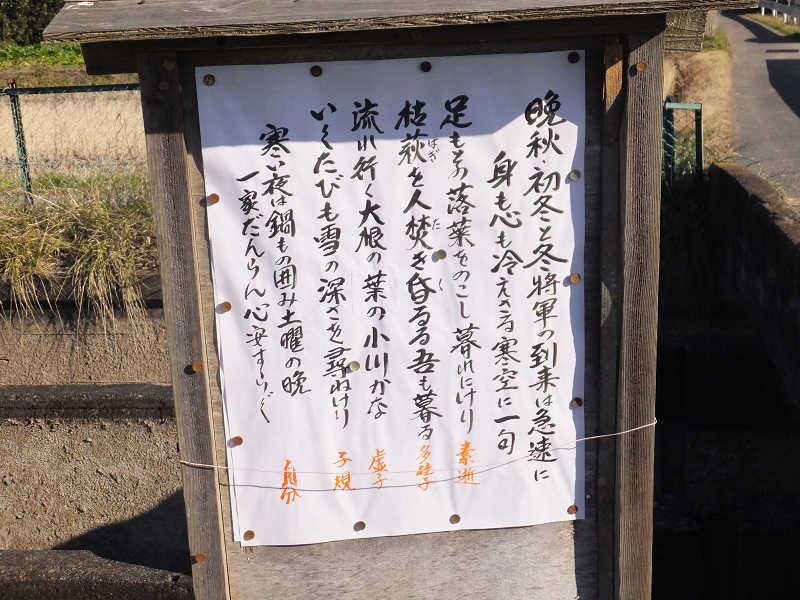 晩秋初冬と冬将軍の到来は急速に
身も心も冷えきる寒空に一句
足もあ落葉をのこし暮れにけり 素逝
枯萩を人焚き昏るる吾も暮る 多佳子
はぎ
た
く
流れ行く大根の葉の小川かな 虚子
いくたびも雪の深さを尋ねけり 子規
寒い夜は鍋もの囲み土曜の晩
一家だんらん心安すらぐ 自分